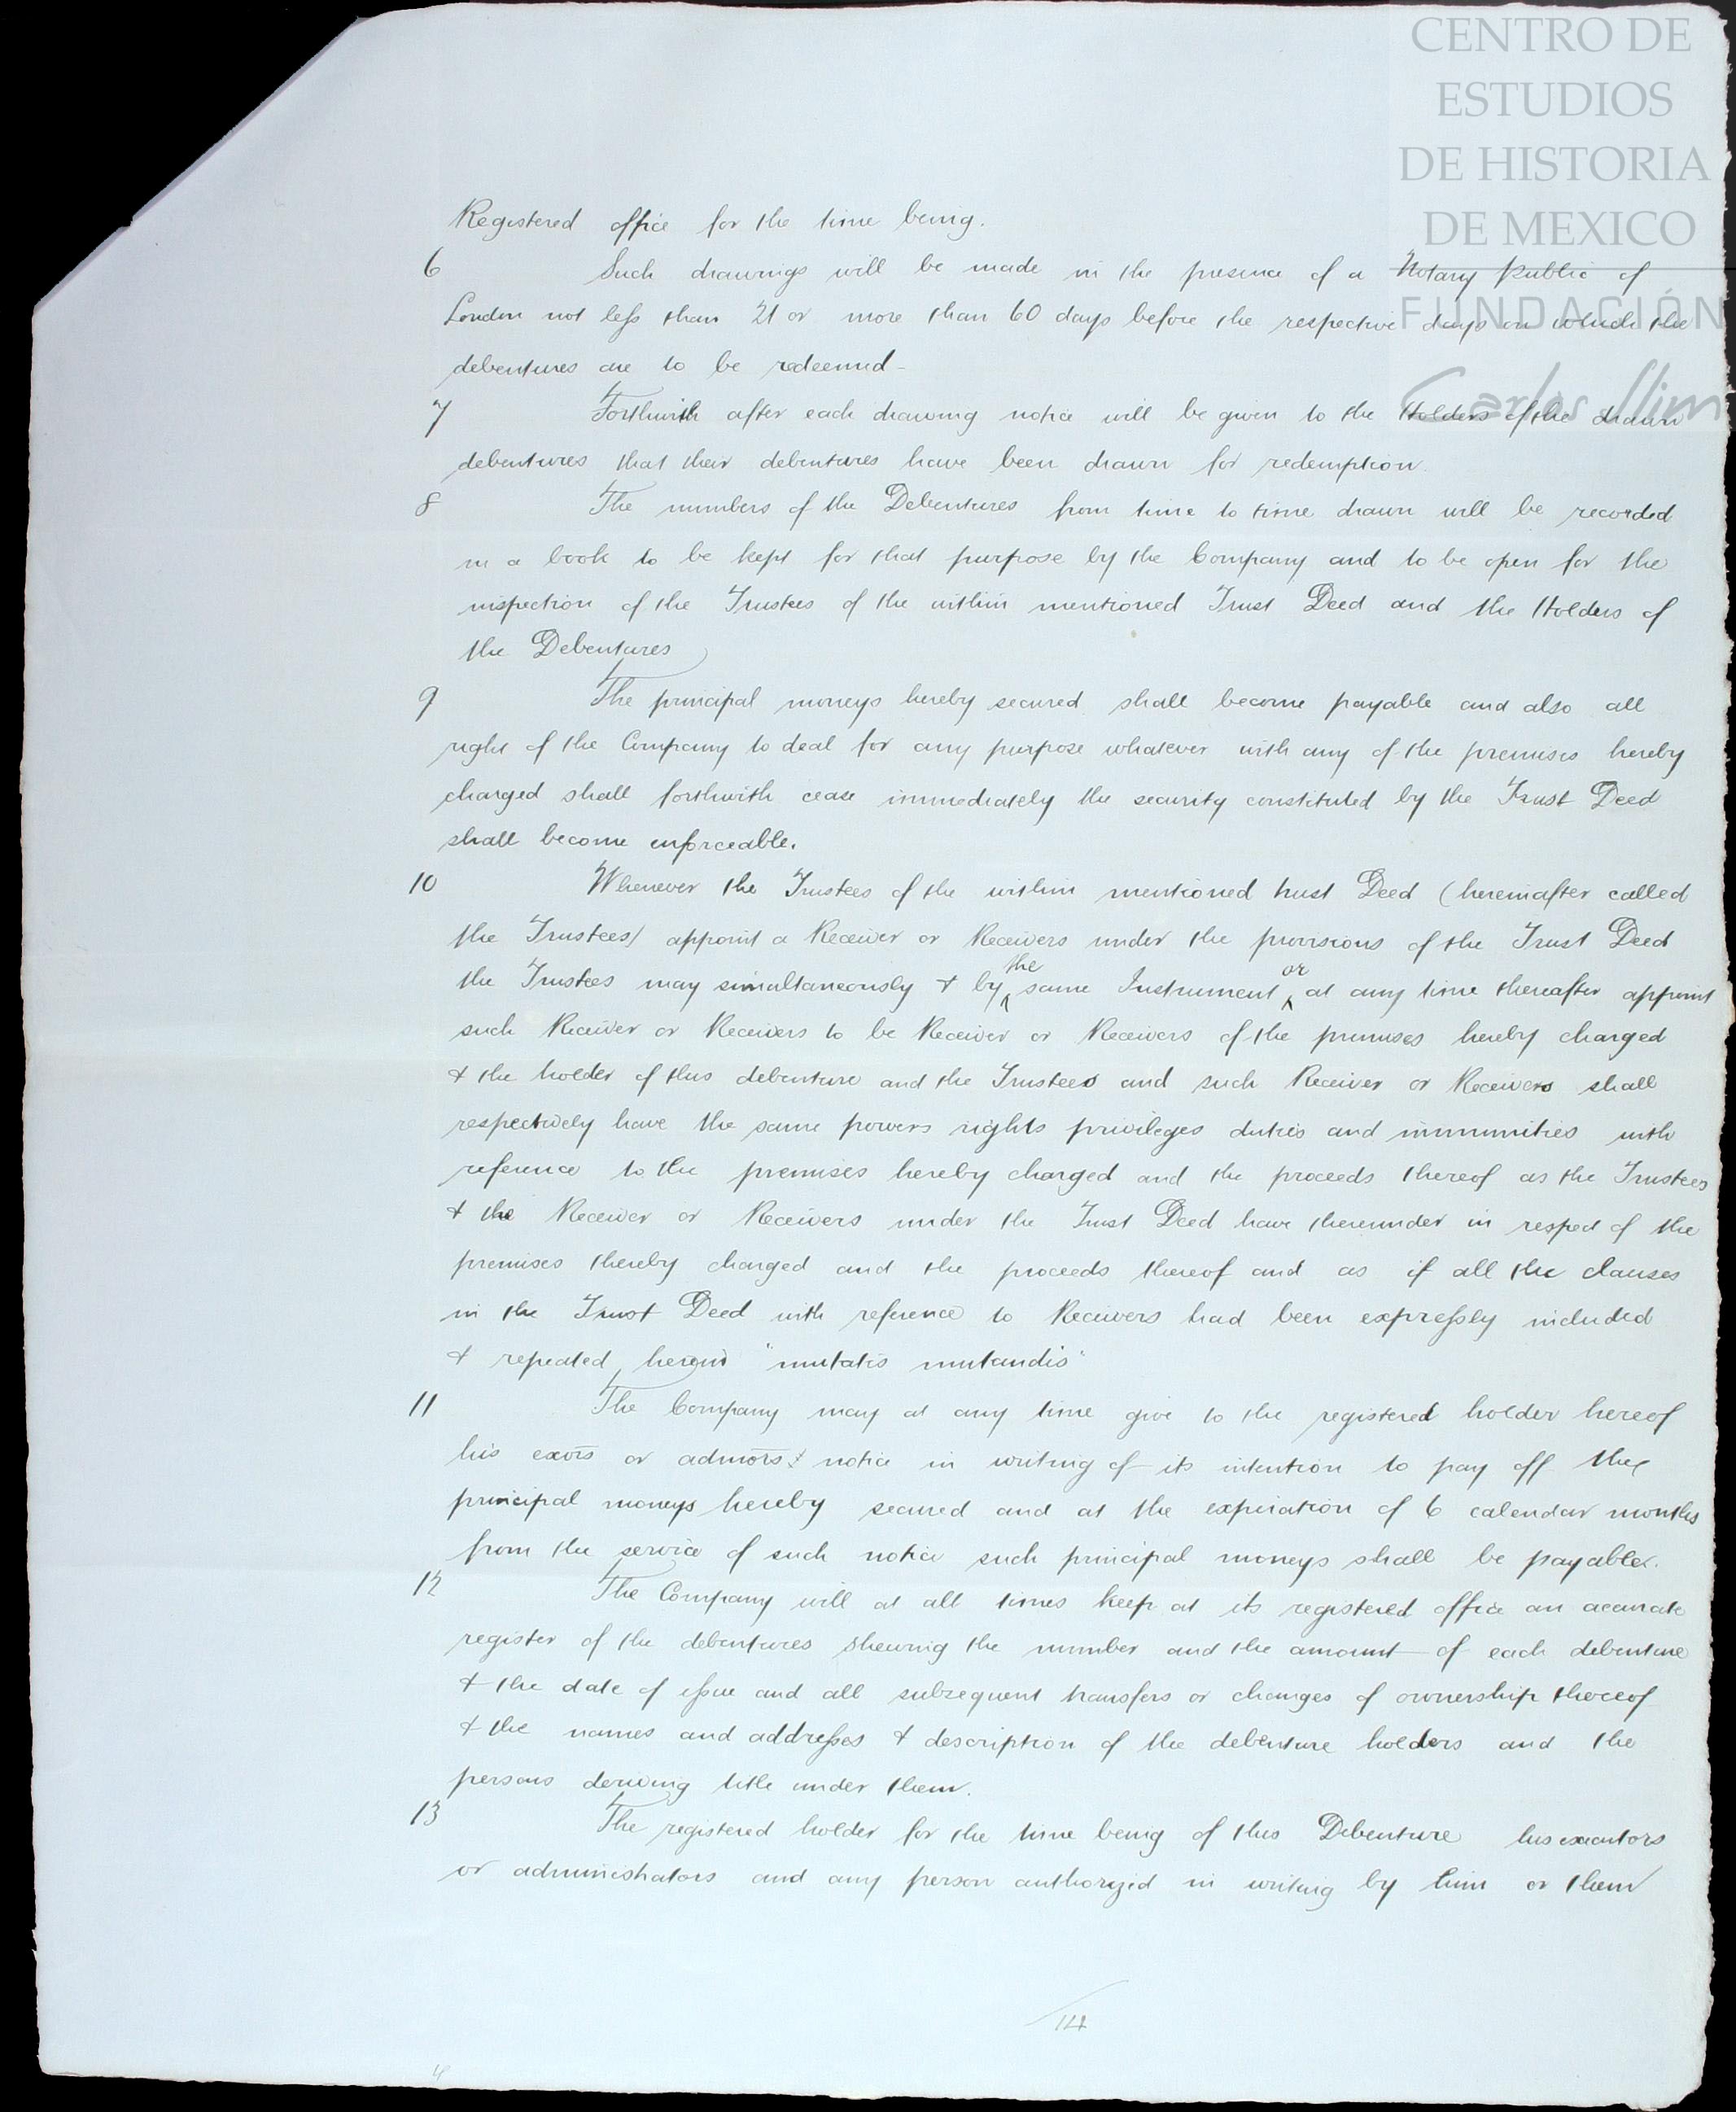 CENTRO DE
ESTUDIOS
DE HISTORIA
DE MEXICO
FUNDACIÓN
Carlos Slim
Registered office for the time being.
6 Such drawings will be made in the presence of a Notary Public of
London not less than 21 or more than 60 days before the respective days on which the
debentures are to be redeemed -
7 Forthwith after each drawing notice will be given to the Holders of the drawn
debentures that their debentures have been drawn for redemption.
8 The numbers of the Debentures from time to time drawn will be recorded
in a book to be kept for that purpose by the Company and to be open for the
inspection of the Trustees of the within mentioned Trust Deed and the Holders of
the Debentures
9 The principal moneys hereby secured shall become payable and also all
right of the Company to deal for any purpose whatever with any of the premises hereby
charged shall forthwith cease immediately the security constituted by the Trust Deed
shall become enforceable.
10 Whenever the Trustees of the within mentioned trust Deed (hereinafter called
the Trustees) appoint a Receiver or Receivers under the provisions of the Trust Deed
the Trustees may simultaneously & by the same Instrument or at any time thereafter appoint
such Receiver or Receivers to be Receiver or Receivers of the premises hereby charged
& the holder of this debenture and the Trustees and such Receiver or Receivers shall
respectively have the same powers rights privileges duties and immunities with
reference to the premises hereby charged and the proceeds thereof as the Trustees
& the Receiver or Receivers under the Trust Deed have thereunder in respect of the
premises thereby charged and the proceeds thereof and as if all the clauses
in the Trust Deed with reference to Receivers had been expressly included
& repeated herein "mutatis mutandis"
11 The Company may at any time give to the registered holder hereof
his exors or admors notice in writing of its intention to pay off the
principal moneys hereby secured and at the expiration of 6 calendar months
from the service of such notice such principal moneys shall be payable.
12 The Company will at all times keep at its registered office an accurate
register of the debentures shewing the number and the amount of each debenture
& the date of issue and all subsequent transfers or changes of ownership thereof
& the names and addresses & description of the debenture holders and the
persons deriving title under them.
13 The registered holder for the time being of this Debenture his executors
or administrators and any person authorized in writing by him or them